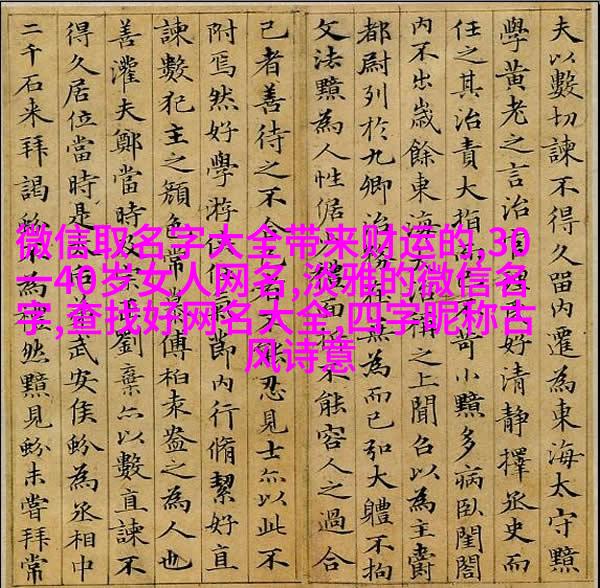 微信取名字大全带来财运的,30
一40岁女人网名,淡雅的微信名
字,查找好网名大全,四字昵称古
风诗意
夫以數切諫不得久留內遷為東海太守黯
學黃老之言治民好清靜擇丞史而
任之其治責大指不苛小黯多病臥閨閤
內不出歲餘東海大治之上聞召以為主爵
都尉列於九卿治務無為而已弘大體不拘
文法黯為人性倨面不能容人之過合
己者善待之不合己者能忍見士亦以此不
附焉然好學游氣節內行脩絜好直
諫數犯主之顏色常慕傅柏袁盎之為人也
善灌夫鄭當時及劉棄亦以數直諫不
得久居位當時是武安侯蚡為丞相中
二千石来拜謁蚡不為然黯見蚡未嘗拜常